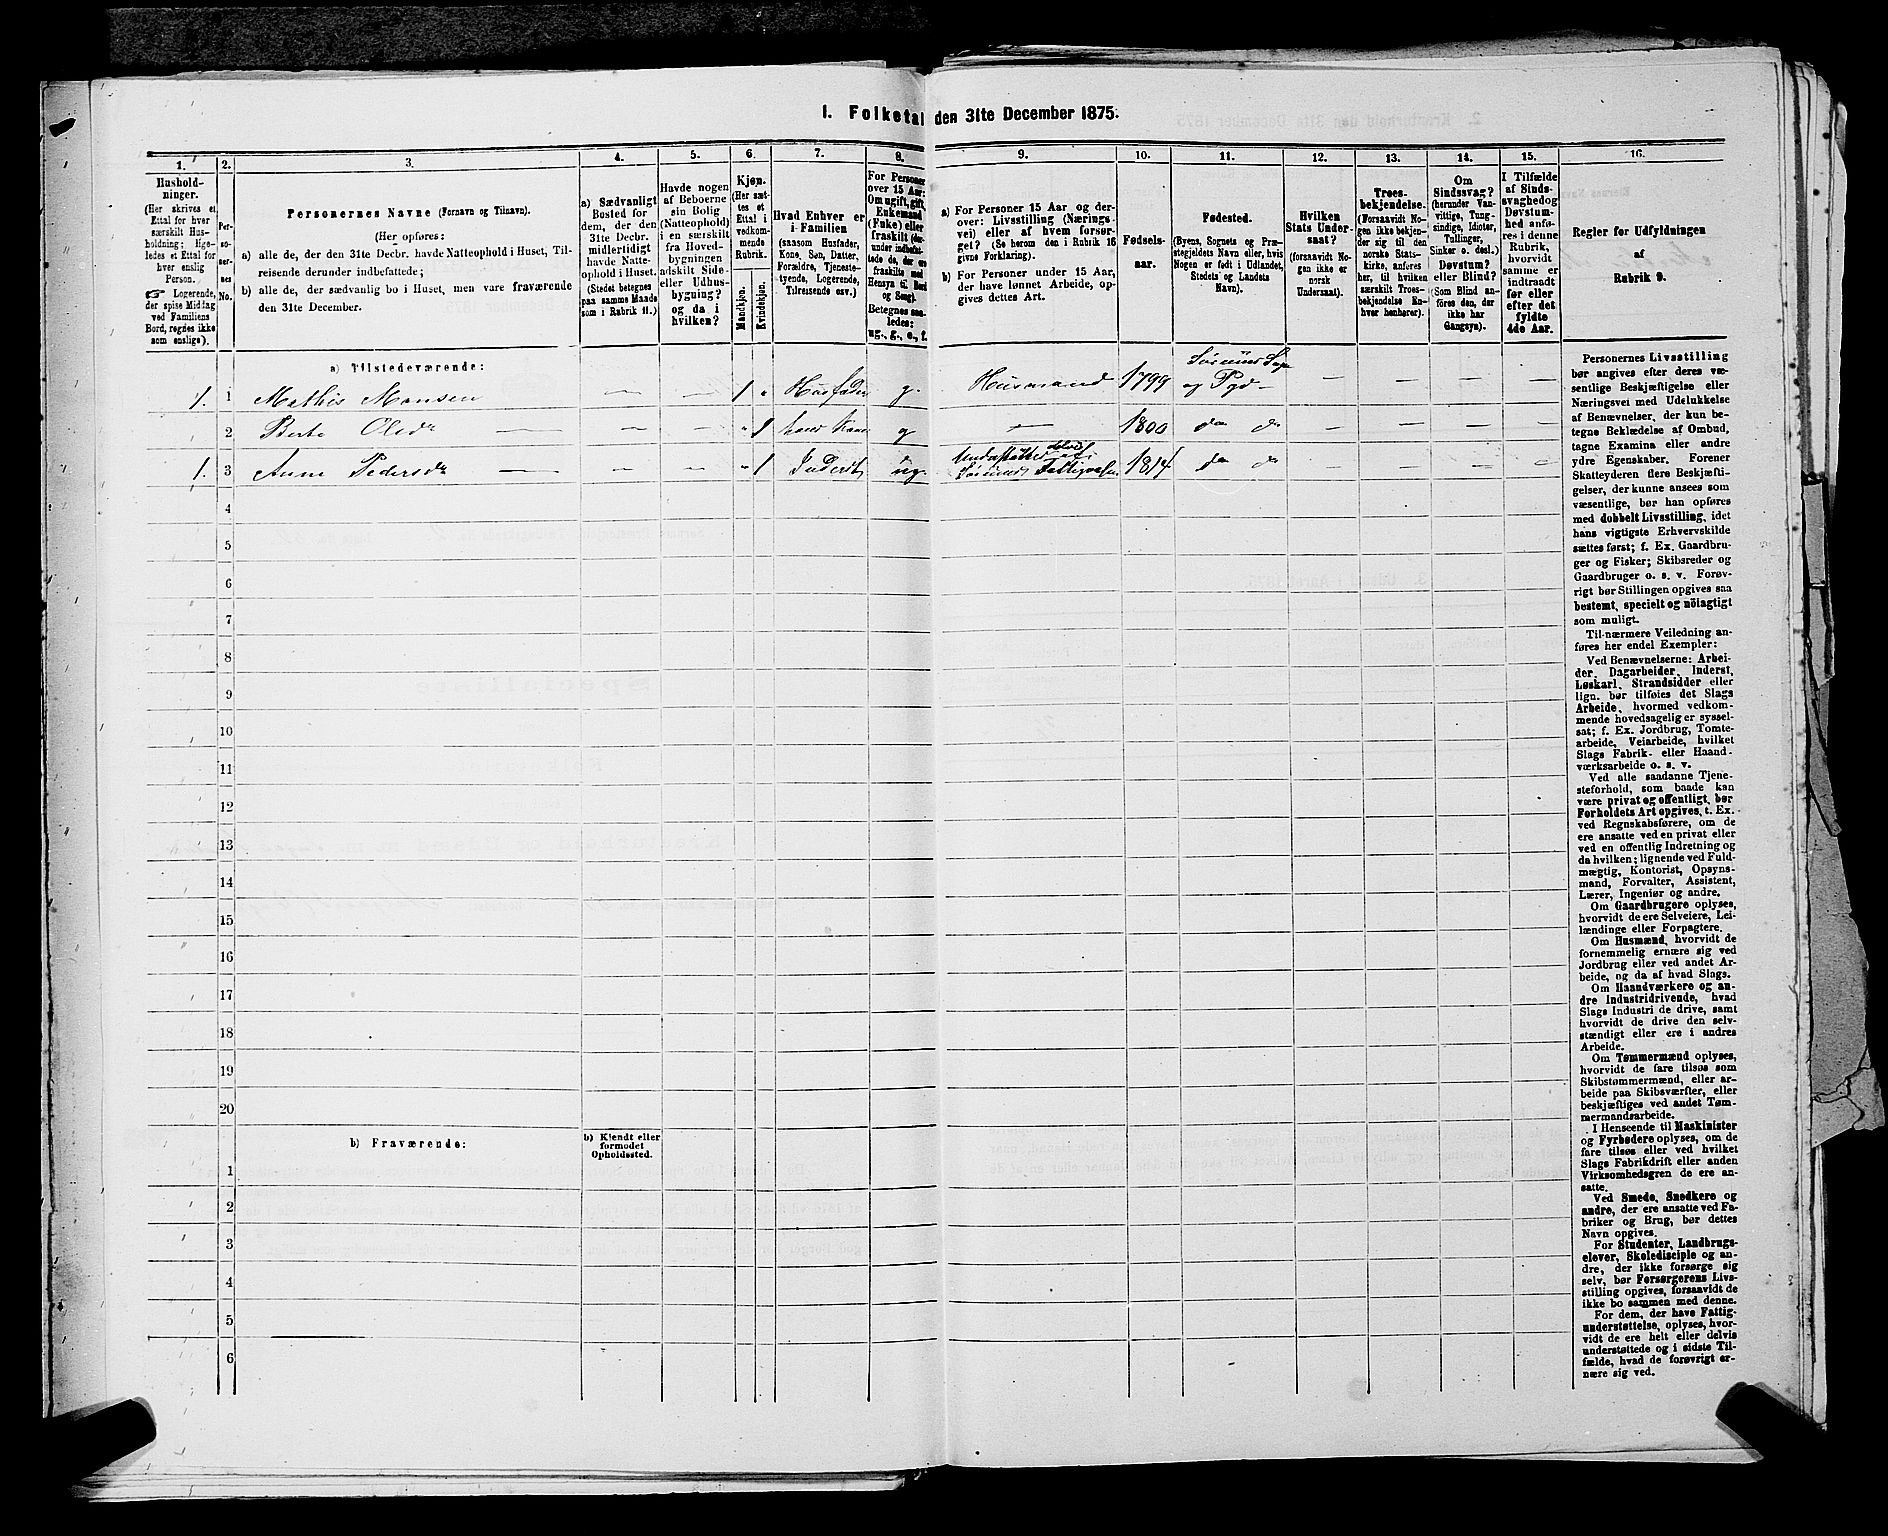 1. Folketal den 31te December 1875.
1. 2. 3. 4. 5. 6. 7. 8. 9. 10. 11. 12. 13. 14. 15. 16.
Hushold-
ninger.
(Her skrives et
Ettal for hver
særskilt Hus-
holdning; lige-
ledes et Ettal for
hver enslig
Person.
☞ Logerende,
der spise Middag
ved Familiens
Bord, regnes ikke
som enslige).
Per-
so-
ner-
nes
No.
Personernes Navne (Fornavn og Tilnavn).
(Her opføres:
a) alle de, der den 31te Decbr. havde Natteophold i Huset, Til-
reisende derunder indbefattede;
b) alle de, der sædvanlig bo i Huset, men vare fraværende
den 31te December.
a) Sædvanligt
Bosted for
dem, der den
31te Decbr.
midlertidigt
havde Natte-
ophold i Huset.
(Stedet betegnes
paa samme Maade
som i Rubrik 11.)
Havde nogen
af Beboerne
sin Bolig
(Natteophold)
i en særskilt
fra Hoved-
bygningen
adskilt Side-
eller Udhus-
bygning?
og da i
hvilken?
Kjøn.
(Her sæt-
tes et
Ettal i
vedkom-
mende
Rubrik.
Mandkjøn.
Kvindekjøn.
Hvad Enhver er
i Familien
(saasom Husfader,
Kone, Søn, Datter,
Forældre, Tjeneste-
tyende, Logerende,
Tilreisende osv.)
For Personer
over 15 Aar:
Om ugift, gift,
Enkemand
(Enke) eller
fraskilt (der-
under indbefat-
tede de, der ere
fraskilte med
Hensyn til Bord
og Seng).
Betegnes saa-
ledes:
ug., g., e., f.
a) For Personer 15 Aar og der-
over: Livsstilling (Nærings-
vei) eller af hvem forsør-
get? (Se herom den i Rubrik 16
givne Forklaring).
b) For Personer under 15 Aar,
der have lønnet Arbeide, op-
gives dettes Art.
Fødsels-
aar.
Fødested.
(Byens, Sognets og Præ-
stegjeldets Navn eller, hvis
Nogen er født i Udlandet,
Stedets og Landets
Navn).
Hvilken
Stats Under-
saat?
(forsaavidt No-
gen ikke er
norsk
Undersaat).
Troes-
bekjendelse.
(Forsaavidt No-
gen ikke bekjen-
der sig til den
norske Stats-
kirke, anføres
her, til hvilken
særskilt Troes-
bekjendelse En-
hver henhører).
Om
Sindssvag?
(herunder Van-
vittige, Tung-
sindige, Idioter,
Tullinger,
Sinker o. desl.)
Døvstum?
eller Blind?
(Som Blind an-
føres den, der
ikke har
Gangsyn).
I Tilfælde
af Sinds-
svaghed og
Døvstum-
hed anfø-
res i denne
Rubrik,
hvorvidt
samme er
indtraadt
før eller
efter det
fyldte
4de Aar.
Regler for Udfyldningen
af
Rubrik 9.
a) Tilstedeværende:
1. 1 Mathis Mansen — — 1 „ Husfader g. Husmand 1799 Sørums Sogn og Pgd — — — —
2 Berte Olsdr — — — „ 1 hans Kone g — 1800 do do — — — —
1. 3 Anne Pedersdr — — — „ 1 Inderst ug. Understøttes delvis af Sørums Fattigvæsen 1814 do do — — — —
4
5
6
7
8
9
10
11
12
13
14
15
16
17
18
19
20
b) Fraværende:
b) Kjendt eller
formodet
Opholdssted.
1
2
3
4
5
6
Personernes Livsstilling
bør angives efter deres væ-
sentlige Beskjæftigelse eller
Næringsvei med Udelukkelse
af Benævnelser, der kun be-
tegne Beklædelse af Ombud,
tagne Examina eller andre
ydre Egenskaber. Forener
Skatteyderen flere Beskjæfti-
gelser, der kunne ansees som
væsentlige, bør han opføres
med dobbelt Livsstilling, idet
hans vigtigste Erhvervskilde
sættes først; f. Ex. Gaardbru-
ger og Fisker; Skibsreder og
Gaardbruger o. s. v. Forøv-
rigt bør Stillingen opgives saa
bestemt, specielt og nöiagtigt
som muligt.
Til nærmere Veiledning an-
føres her endel Exempler:
Ved Benævnelserne: Arbei-
der, Dagarbeider, Inderst,
Løskarl, Strandsidder eller
lign. bør tilføies det Slags
Arbeide, hvormed vedkom-
mende hovedsagelig er syssel-
sat; f. Ex. Jordbrug, Tomte-
arbeide, Veiarbeide, hvilket
Slags Fabrik- eller Haand-
værksarbeide o. s. v.
Ved alle saadanne Tjene-
steforhold, som baade kan
være privat og offentligt, bør
Forholdets Art opgives, t. Ex.
ved Regnskabsførere, om de
ere ansatte ved en privat eller
ved en offentlig Indretning og
da hvilken; lignende ved Fuld-
mægtig, Kontorist, Opsyns-
mand, Forvalter, Assistent,
Lærer, Ingeniør og andre.
Om Gaardbrugere oplyses,
hvorvidt de ere Selveiere, Lei-
lændinge eller Forpagtere.
Om Husmænd, hvorvidt de
fornemmelig ernære sig ved
Jordbrug eller ved andet Ar-
beide, og da af hvad Slags.
Om Haandværkere og an-
dre Industridrivende, hvad
Slags Industri de drive, samt
hvorvidt de drive den selv-
stændigt eller ere i andres
Arbeide.
Om Tømmermænd oplyses,
hvorvidt de fare tilsøs som
Skibstømmermænd, eller ar-
beide paa Skibsværfter, eller
beskjæftiges ved andet Tøm-
mermandsarbeide.
I Henseende til Maskinister
og Fyrbødere oplyses, om de
fare tilsøs eller ved hvilket
Slags Fabrikdrift eller anden
Virksomhedsgren de ere an-
satte.
Ved Smede, Snedkere og
andre, der ere ansatte ved Fa-
briker og Brug, bør dettes
Navn opgives.
For Studenter, Landbrugs-
elever, Skoledisciple og an-
dre, der ikke forsørge sig
selv, bør Forsørgerens Livs-
stilling opgives, forsaavidt de
ikke bo sammen med denne.
For dem, der have Fattig-
understøttelse, oplyses, hvor-
vidt de ere helt eller delvis
understøttede og i sidste Til-
fælde, hvad de forøvrigt er-
nære sig ved.